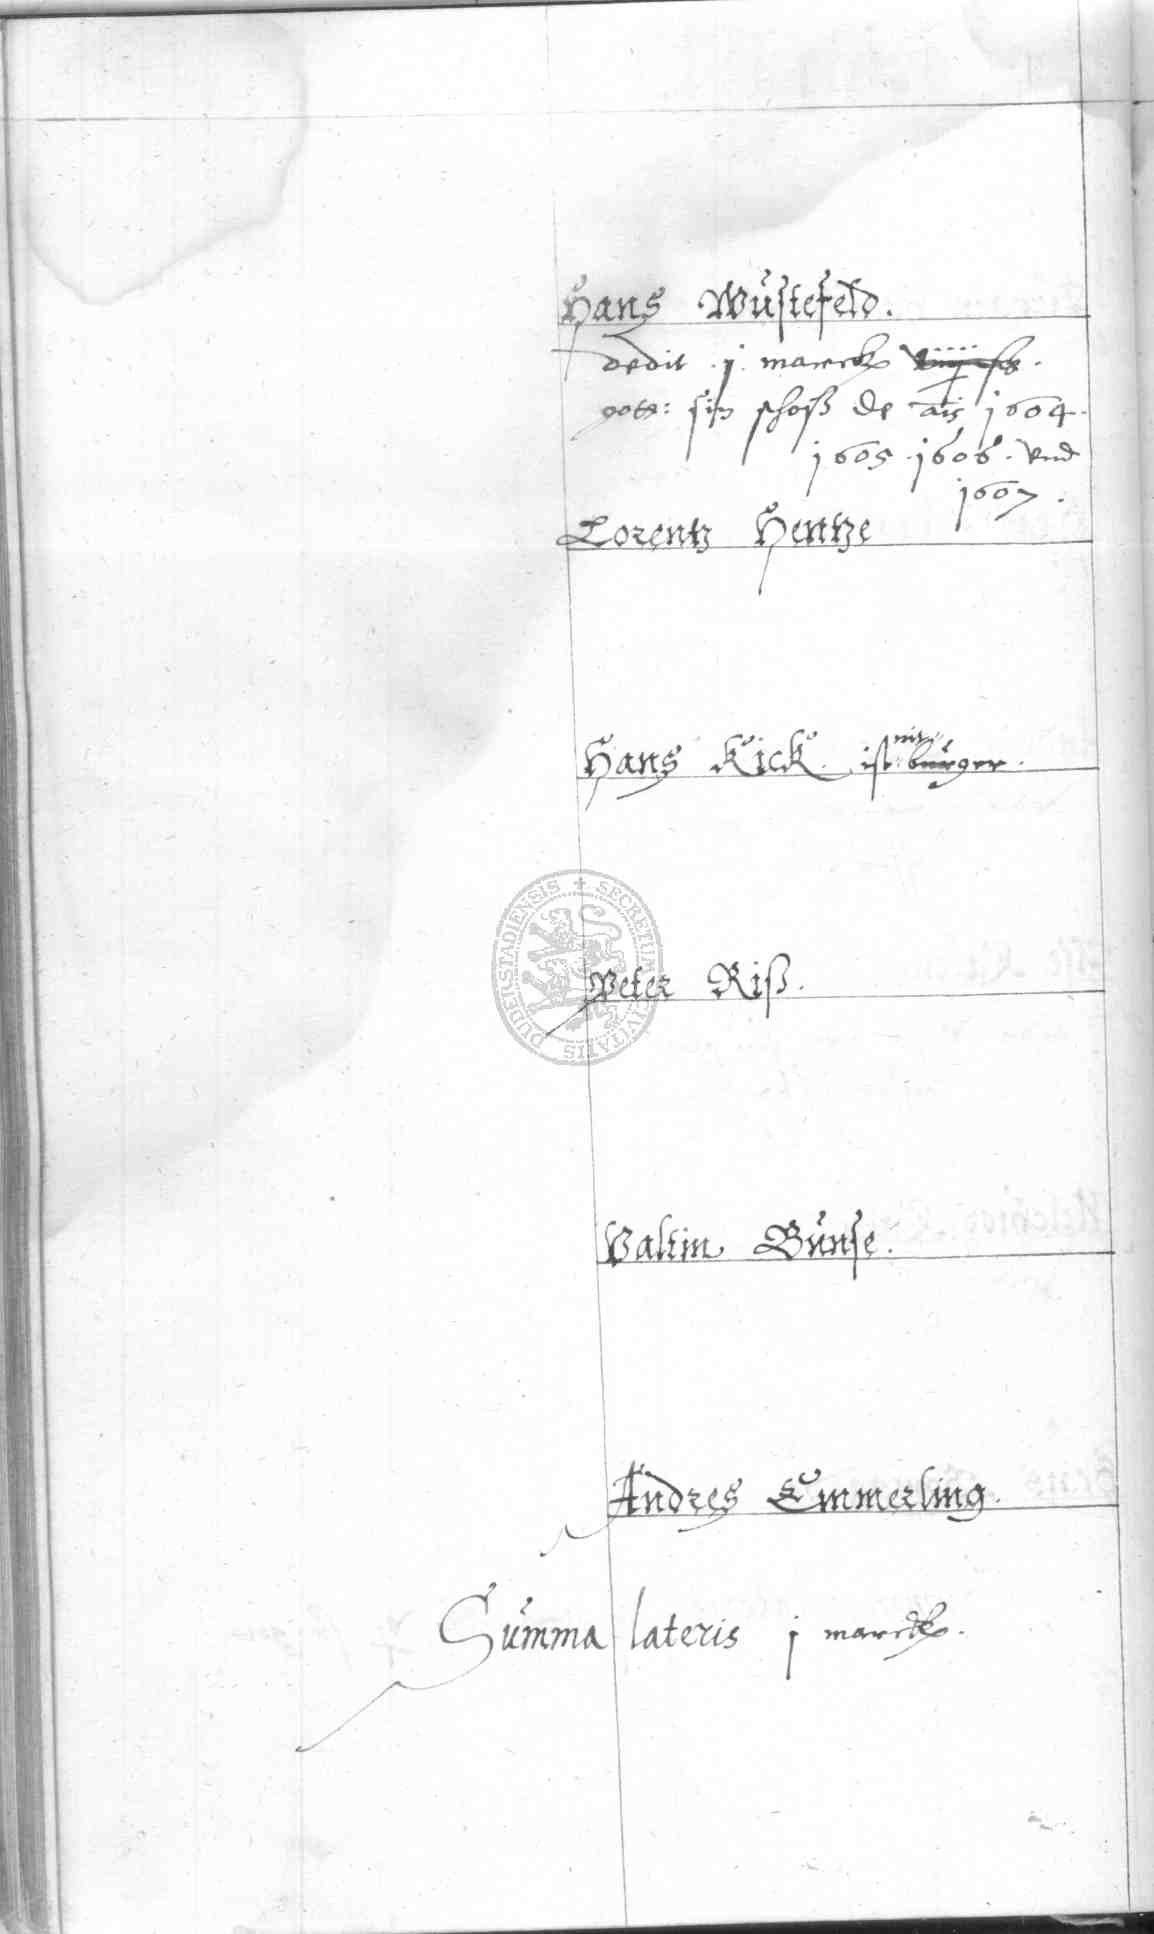 Hans Wüstefeld.
dedit . j . marck
sin schoß de ais 1604.
1605 . 1606 . vnd
1607 .
Lorentz Hentze
Hans Kick. ist nit burger.
Peter Riß.
Valtin Bünse.
Andres Emmerling.
Summa lateris j marck.
DUDERSTADIENSIS + SECRETUM CIVITATIS